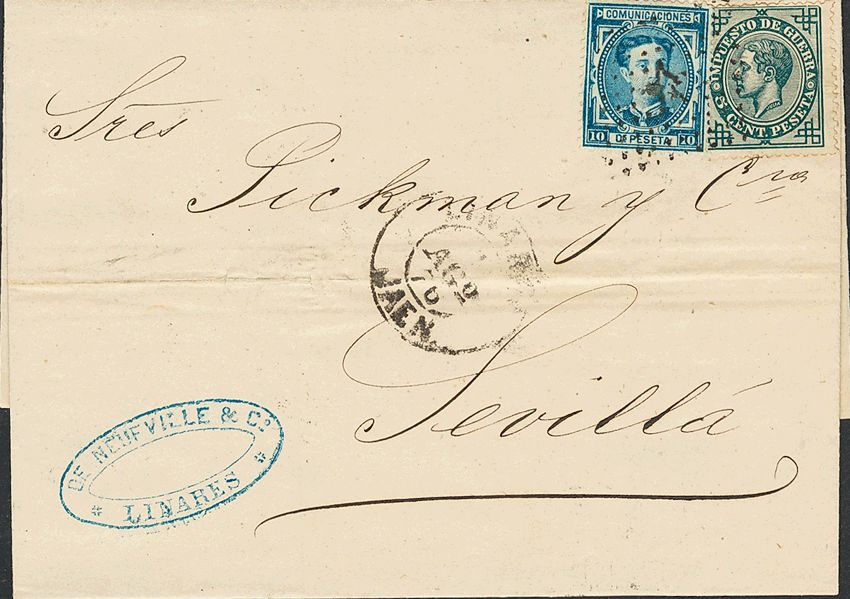 COMUNICACIONES
10 DE PESETA 10
IMPUESTO DE GUERRA
5 CENT. PESETA
Sres
Pickman y Cia
LINAR
AGO
76
JAEN
Sevilla
DE NEUFVILLE & Co
* LINARES *